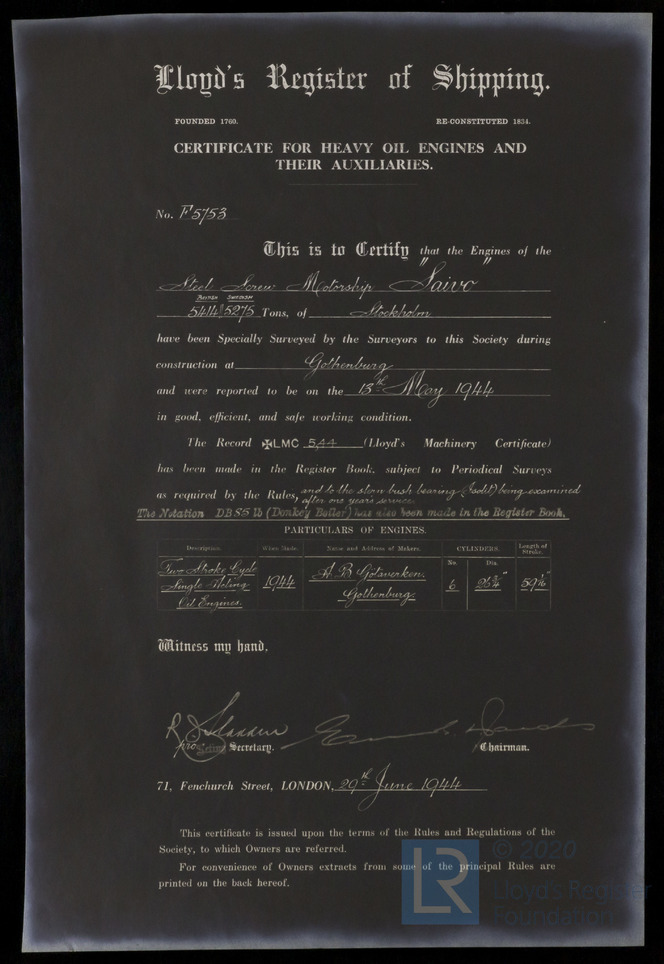 Lloyd's Register of Shipping.
FOUNDED 1760. RE-CONSTITUTED 1834.
CERTIFICATE FOR HEAVY OIL ENGINES AND
THEIR AUXILIARIES.
No. F5753
This is to Certify that the Engines of the
Steel Screw Motorship "Saivo"
BRITISH SWEDISH
5414 5275 Tons, of Stockholm
have been Specially Surveyed by the Surveyors to this Society during
construction at Gothenburg
and were reported to be on the 13th May 1944
in good, efficient, and safe working condition.
The Record ✠LMC 5,44 (Lloyd's Machinery Certificate)
has been made in the Register Book, subject to Periodical Surveys
as required by the Rules, and to the stern bush bearing being examined
after one years service.
The Notation DB85 lb (Donkey Boiler) has also been made in the Register Book.
PARTICULARS OF ENGINES.
Description. When Made. Name and Address of Makers. CYLINDERS. Length of Stroke.
No. Dia.
Two Stroke Cycle
Single Acting
Oil Engines. 1944 A.B. Götaverken.
Gothenburg. 6
Witness my hand,
pro Acting Secretary. Chairman.
71, Fenchurch Street, LONDON, 29th June 1944
This certificate is issued upon the terms of the Rules and Regulations of the
Society, to which Owners are referred.
For convenience of Owners extracts from some of the principal Rules are
printed on the back hereof.
LR
© 2020
Lloyd's Register
Foundation